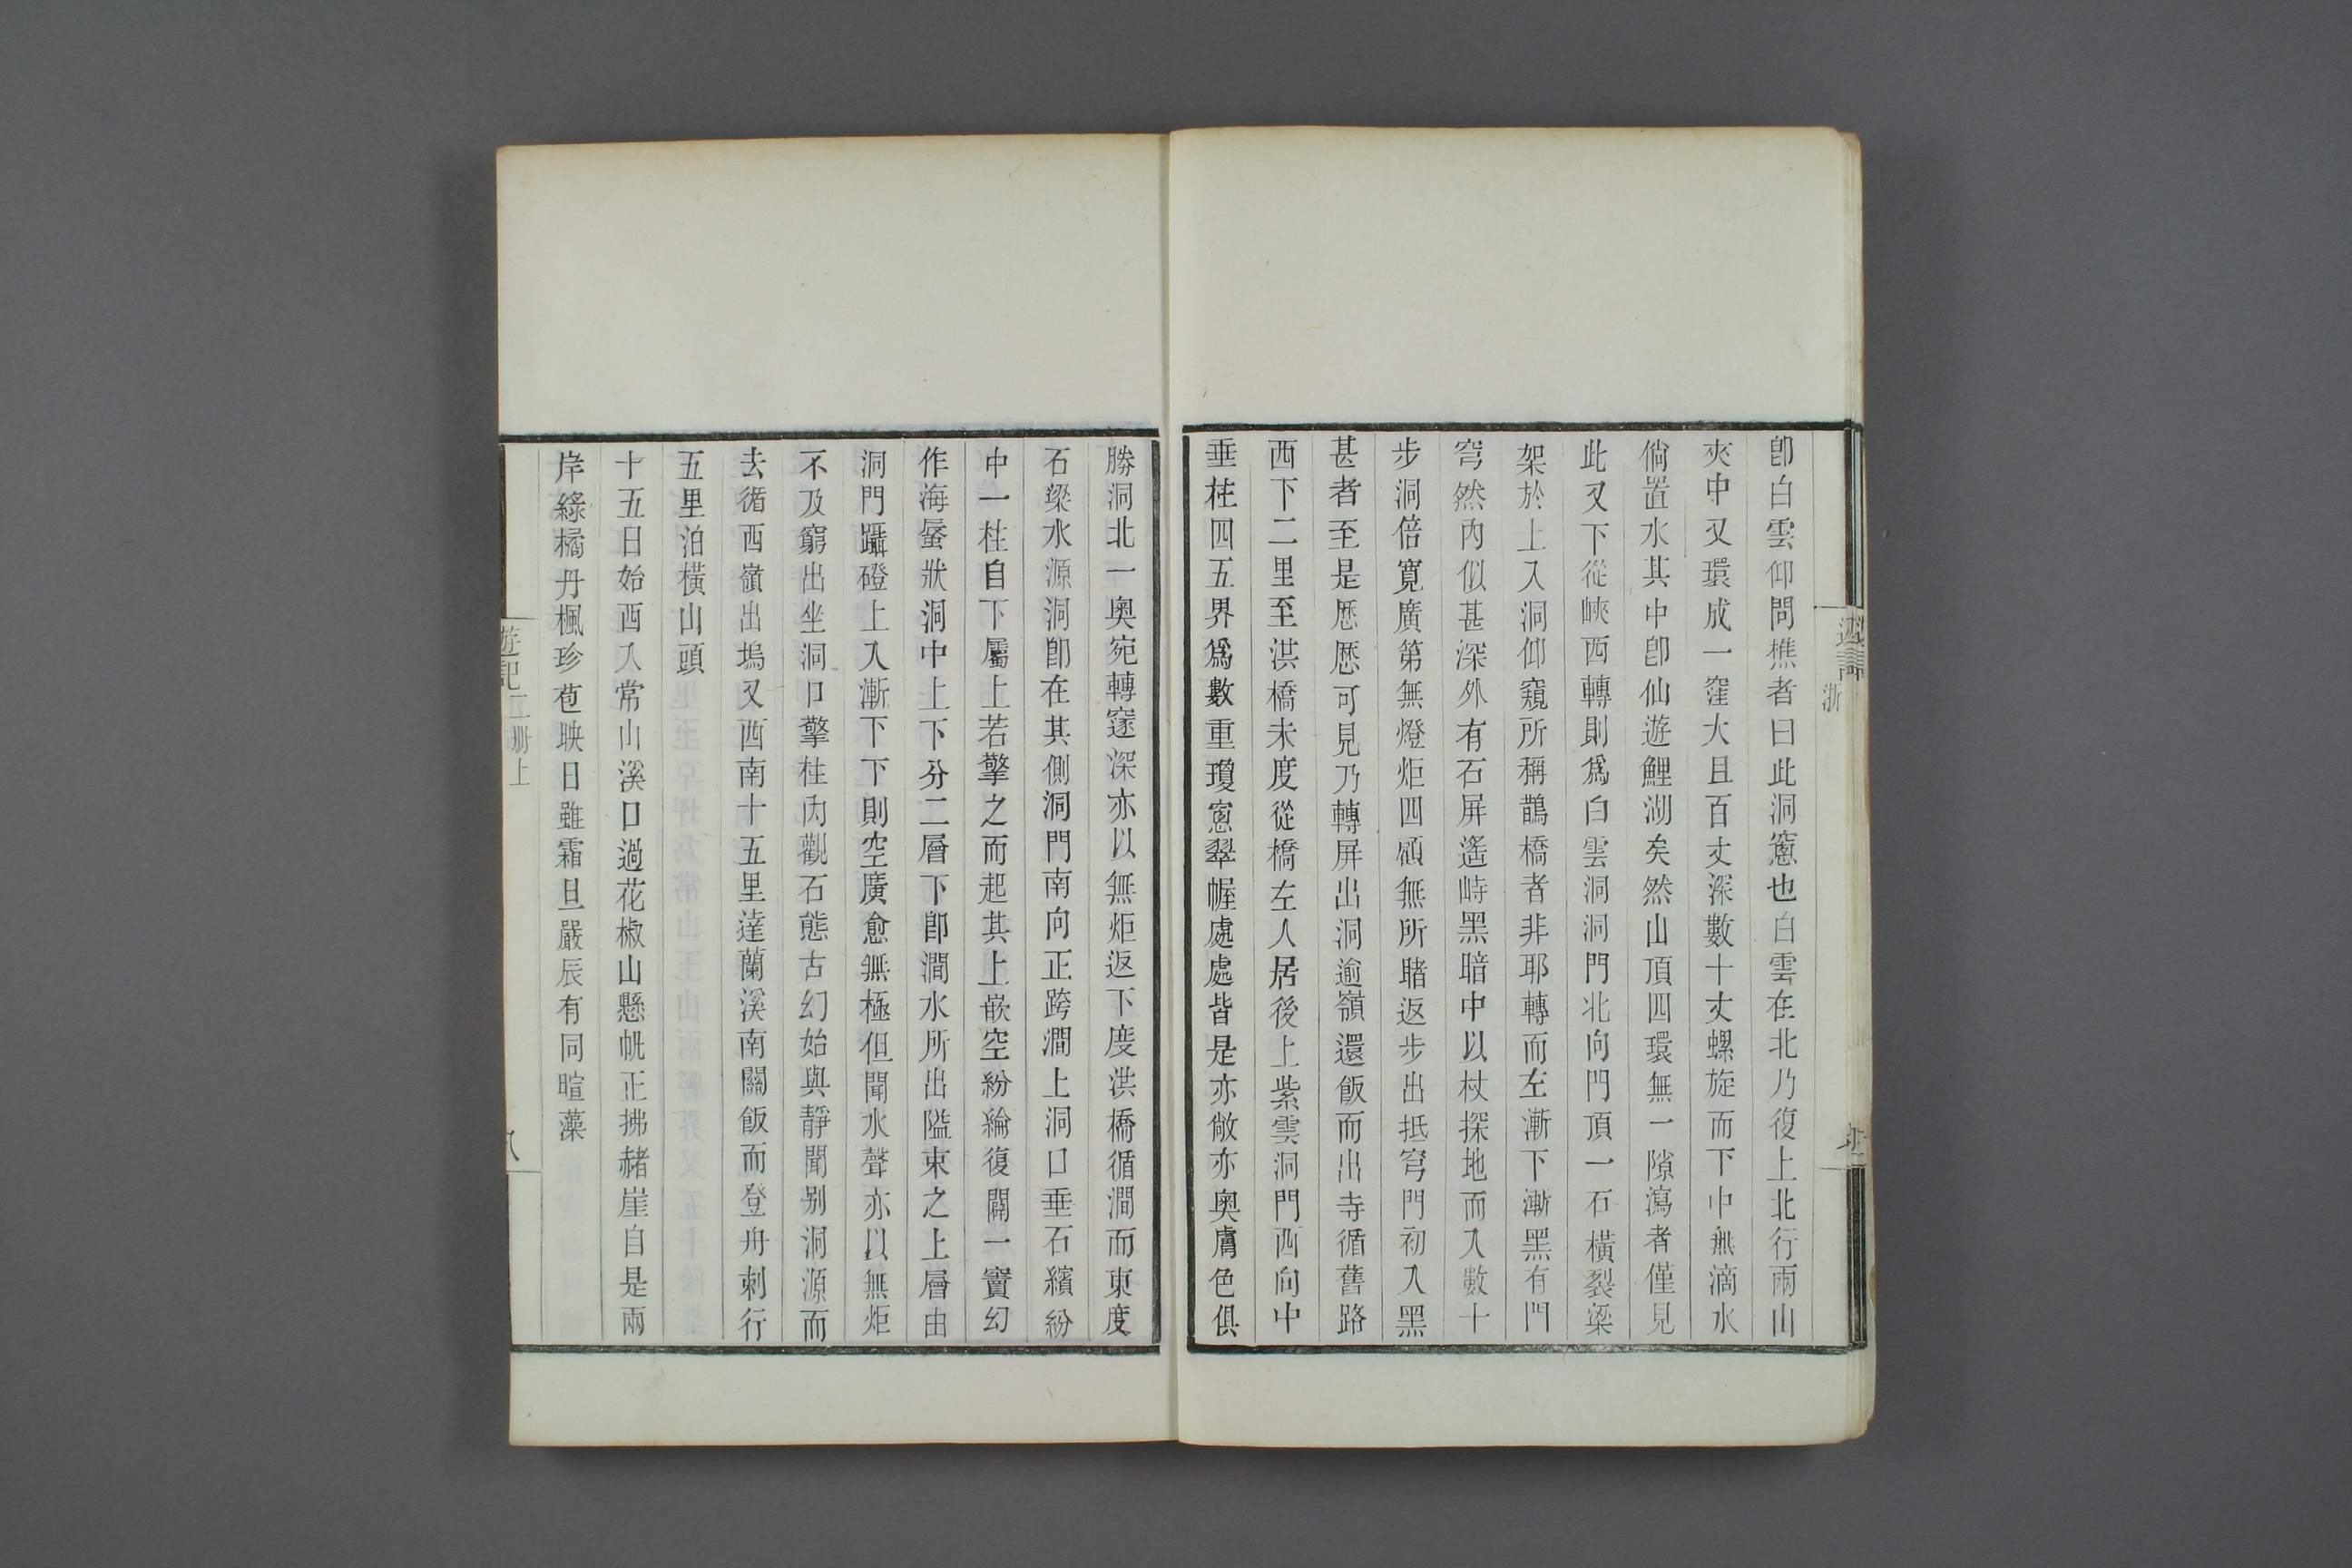 浙
卽白雲仰問樵者曰此洞窻也白雲在北乃復上北行兩山
夾中又環成一窪大且百丈深數十丈螺旋而下中無滴水
倘置水其中卽仙遊鯉湖矣然山頂四環無一隙瀉者僅見
此又下從峽西轉則爲白雲洞洞門北向門頂一石橫裂梁
架於上入洞仰窺所稱鵲橋者非耶轉而左漸下漸黑有門
穹然內似甚深外有石屏遙峙黑暗中以杖探地而入數十
步洞倍寬廣第無燈炬四顧無所睹返步出抵穹門初入黑
甚者至是歷歷可見乃轉屏出洞逾嶺還飯而出寺循舊路
西下二里至洪橋未度從橋左人居後上紫雲洞門西向中
垂柱四五界爲數重瓊窻翠幄處處皆是亦敞亦奧膚色俱
勝洞北一奧宛轉邃深亦以無炬返下度洪橋循澗而東度
石梁水源洞卽在其側洞門南向正跨澗上洞口垂石繽紛
中一柱自下屬上若擎之而起其上嵌空紛綸復闢一竇幻
作海蜃狀洞中上下分二層下卽澗水所出隘束之上層由
洞門躡磴上入漸下下則空廣愈無極但聞水聲亦以無炬
不及窮出坐洞口擎柱內觀石態古幻始與靜聞別洞源而
去循西嶺出塢又西南十五里達蘭溪南關飯而登舟刺行
五里泊橫山頭
十五日始西入常山溪口過花椒山懸帆正拂赭崖自是兩
岸綠橘丹楓珍苞映日雖霜旦嚴辰有同暄藻
遊記二册上
八